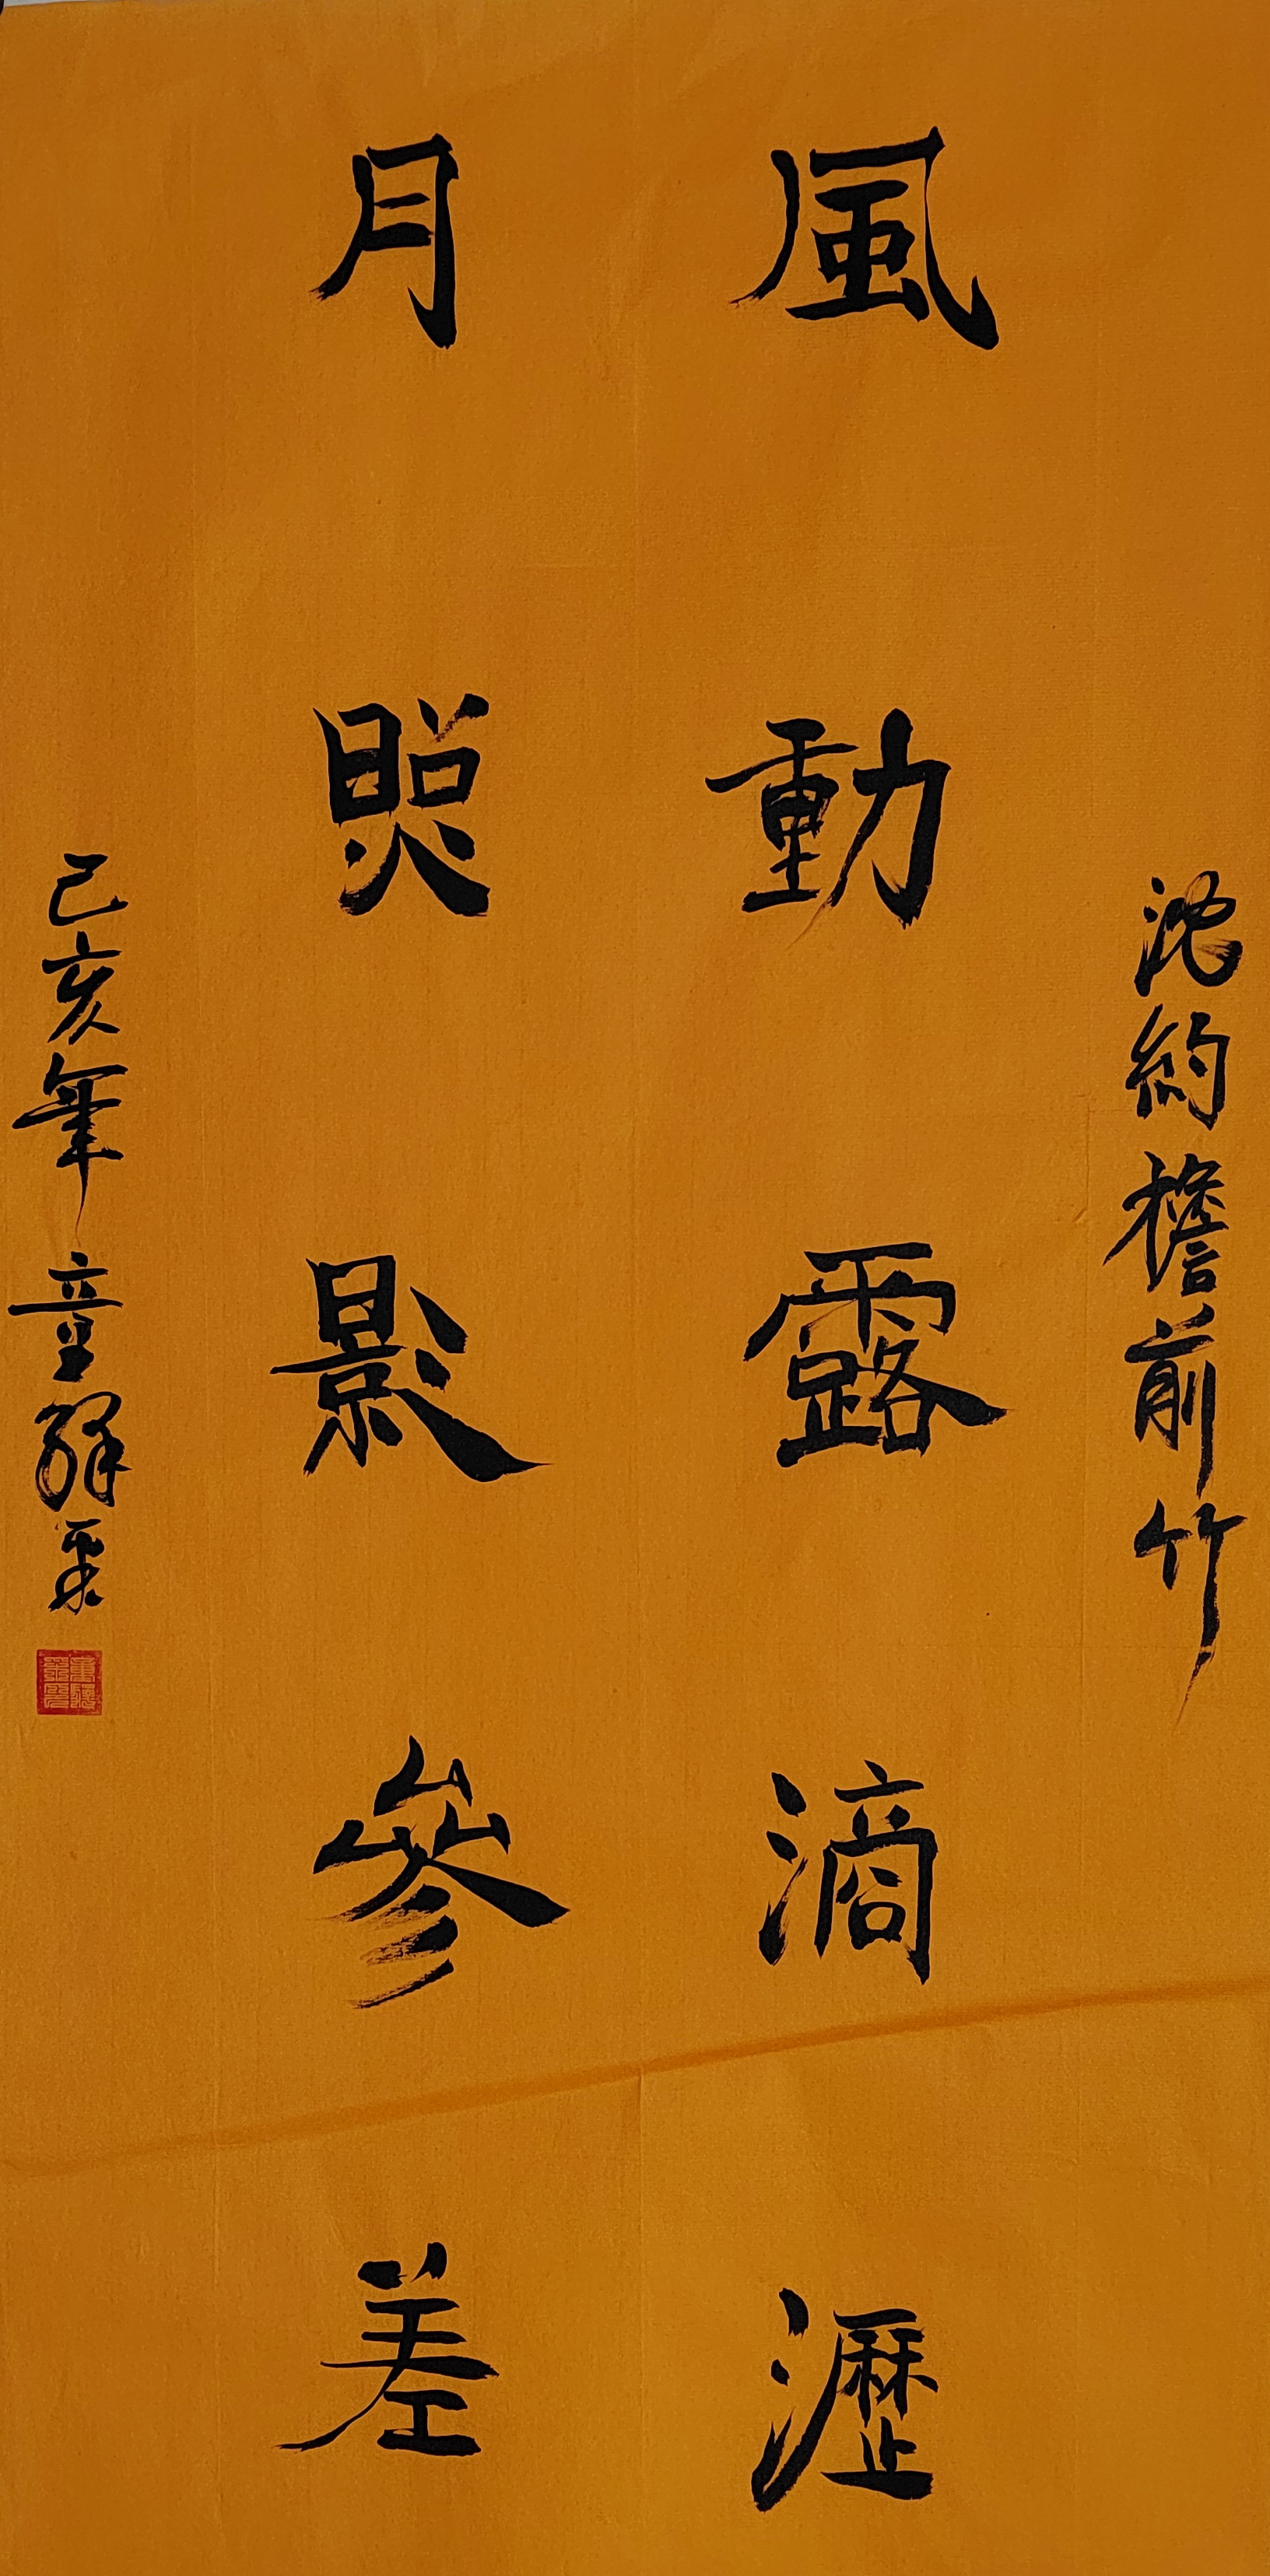 沈約檐前竹
風動露滴瀝
月照影參差
己亥年童驛采